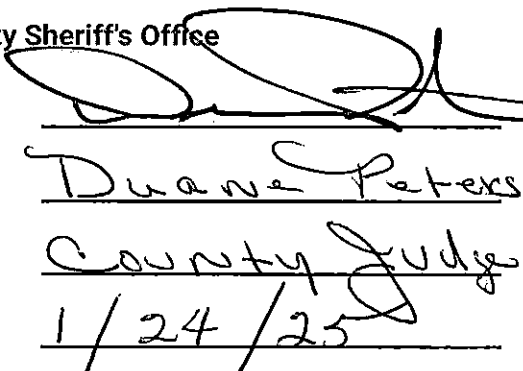 ty Sheriff's Office
Duane Peters
County Judge
1/24/25